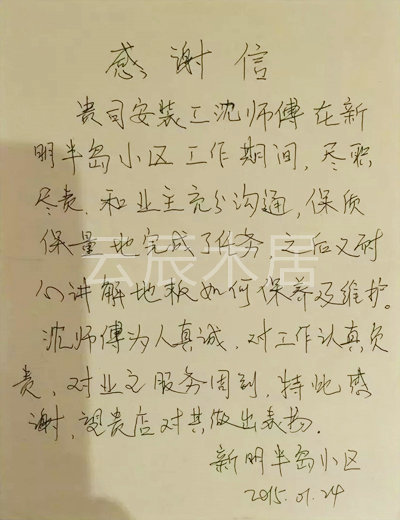 感谢信
贵司安装工沈师傅在新
明半岛小区工作期间，尽职
尽责，和业主充分沟通，保质
保量地完成了任务，之后又耐
心讲解地板如何保养及维护。
沈师傅为人真诚，对工作认真负
责，对业主服务周到，特此感
谢，望贵店对其做出表扬．
新明半岛小区
2015.01.24
云辰木居